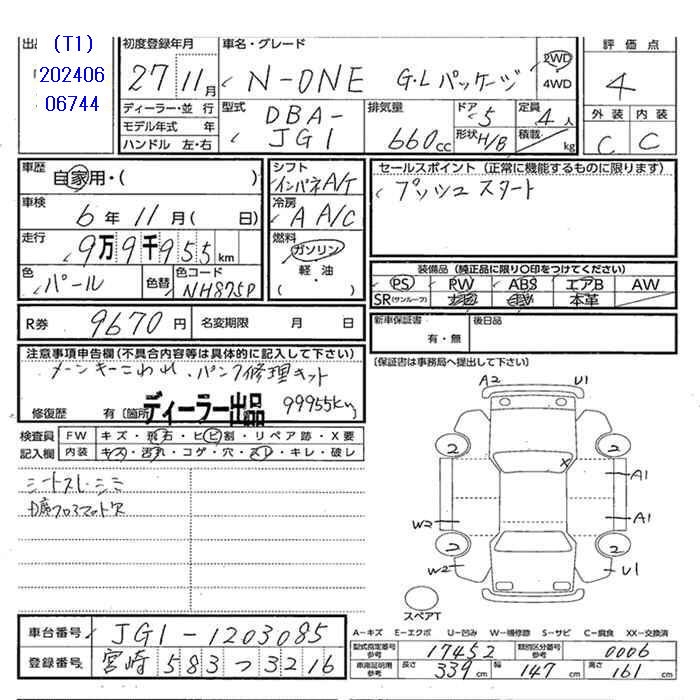 出品
(T1)
202406
06744
初度登録年月
27 11月
車名・グレード
N-ONE G・Lパッケージ
2WD
4WD
評価点
4
ディーラー・並行
モデル年式 年
ハンドル 左・右
型式
DBA-
JG1
排気量
660cc
ドア 5
形状 H/B
定員 4人
積載 kg
外装 内装
C C
車歴
自家用・( )
車検
6年 11月( 日)
走行
9万9千955km
色 パール
色替
色コード NH875P
シフト
インパネA/T
冷房
A A/C
燃料
ガソリン
軽・油
( )
セールスポイント(正常に機能するものに限ります)
プッシュスタート
装備品(純正品に限り○印をつけてください)
PS PW ABS エアB AW
SR(サンルーフ) 本革
R券 9670円 名変期限 月 日
新車保証書
有・無
後日品
(保証書は事務局へ提出して下さい)
注意事項申告欄(不具合内容等は具体的に記入して下さい)
メーンキーこわれ、パンク修理キット
修復歴 有(箇所 ディーラー出品 99955km
検査員 FW キズ・飛石・ヒビ割・リペア跡・X要
記入欄 内装 キズ・汚れ・コゲ・穴・スレ・キレ・破レ
シートスレ・シミ
A2 U1
2 2
X
A1
A1
W2
2 2
W2 U1
スペアT
車台番号 JG1-1203085
登録番号 宮崎 583 つ 3216
A-キズ E-エクボ U-凹み W-補修跡 S-サビ C-腐食 XX-交換済
型式指定番号 参考 17452 類別区分番号 参考 0006
車庫証明用 参考 長さ 339cm 幅 147cm 高さ 161cm